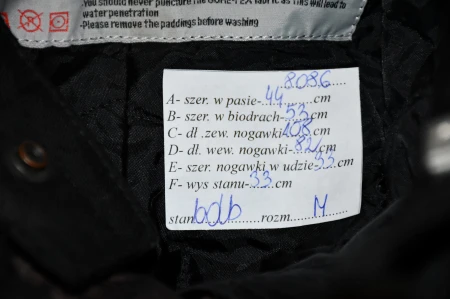 -You should never puncture the GORE-TEX fabric as this will lead to
water penetration
-Please remove the paddings before washing
8086
A- szer. w pasie-44cm
B- szer. w biodrach-53cm
C- dł .zew. nogawki-108cm
D- dł. wew. nogawki-82cm
E- szer. nogawki w udzie-33cm
F- wys stanu-33.cm
stan bdb rozm M